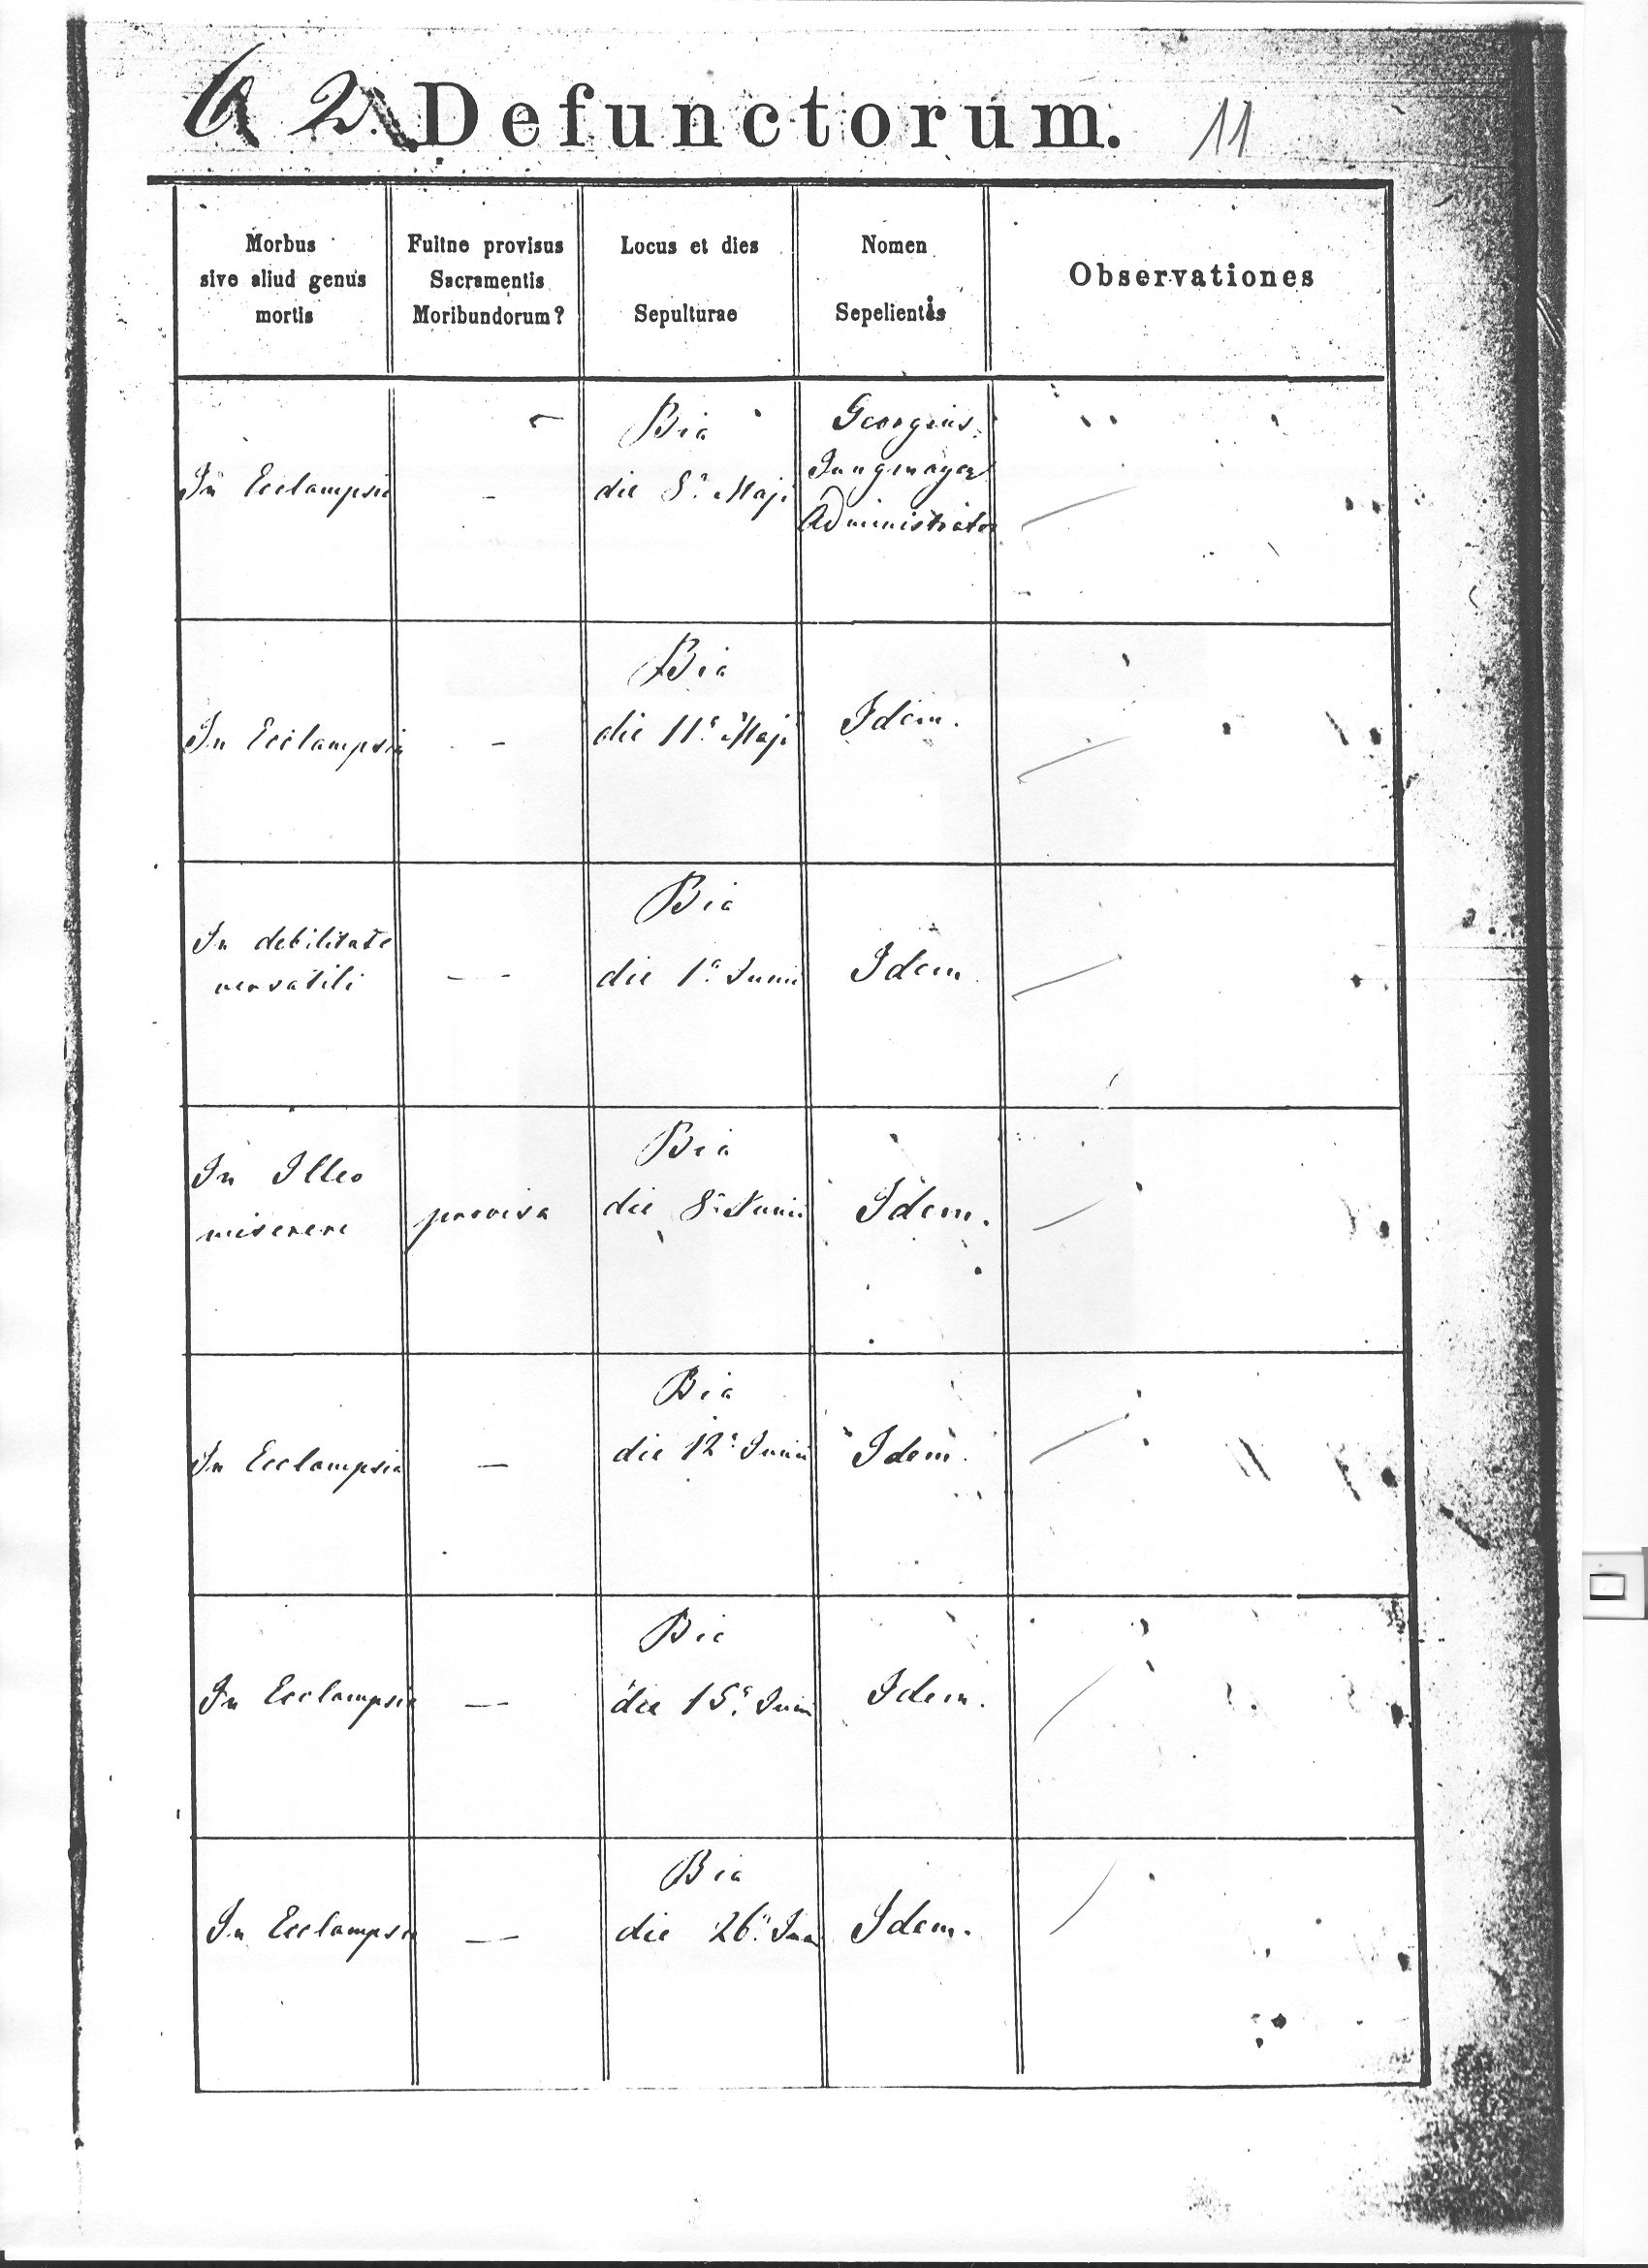 62. Defunctorum. 11
Morbus
sive aliud genus
mortis
Fuitne provisus
Sacramentis
Moribundorum?
Locus et dies
Sepulturae
Nomen
Sepelientis
Observationes
In Ecclampsia
-
Bia
die 8a Maji
Georgius
Jungmayer
Administrator
In Ecclampsia
-
Bia
die 11a Maji
Idem.
In debilitate
-
Bia
die 1a Junii
Idem
In Illeo
miserere
provisa
Bia
die 8a Junii
Idem.
In Ecclampsia
-
Bia
die 12a Junii
Idem.
In Ecclampsia
-
Bia
die 15a Junii
Idem.
In Ecclampsia
-
Bia
die 26a Juni
Idem.